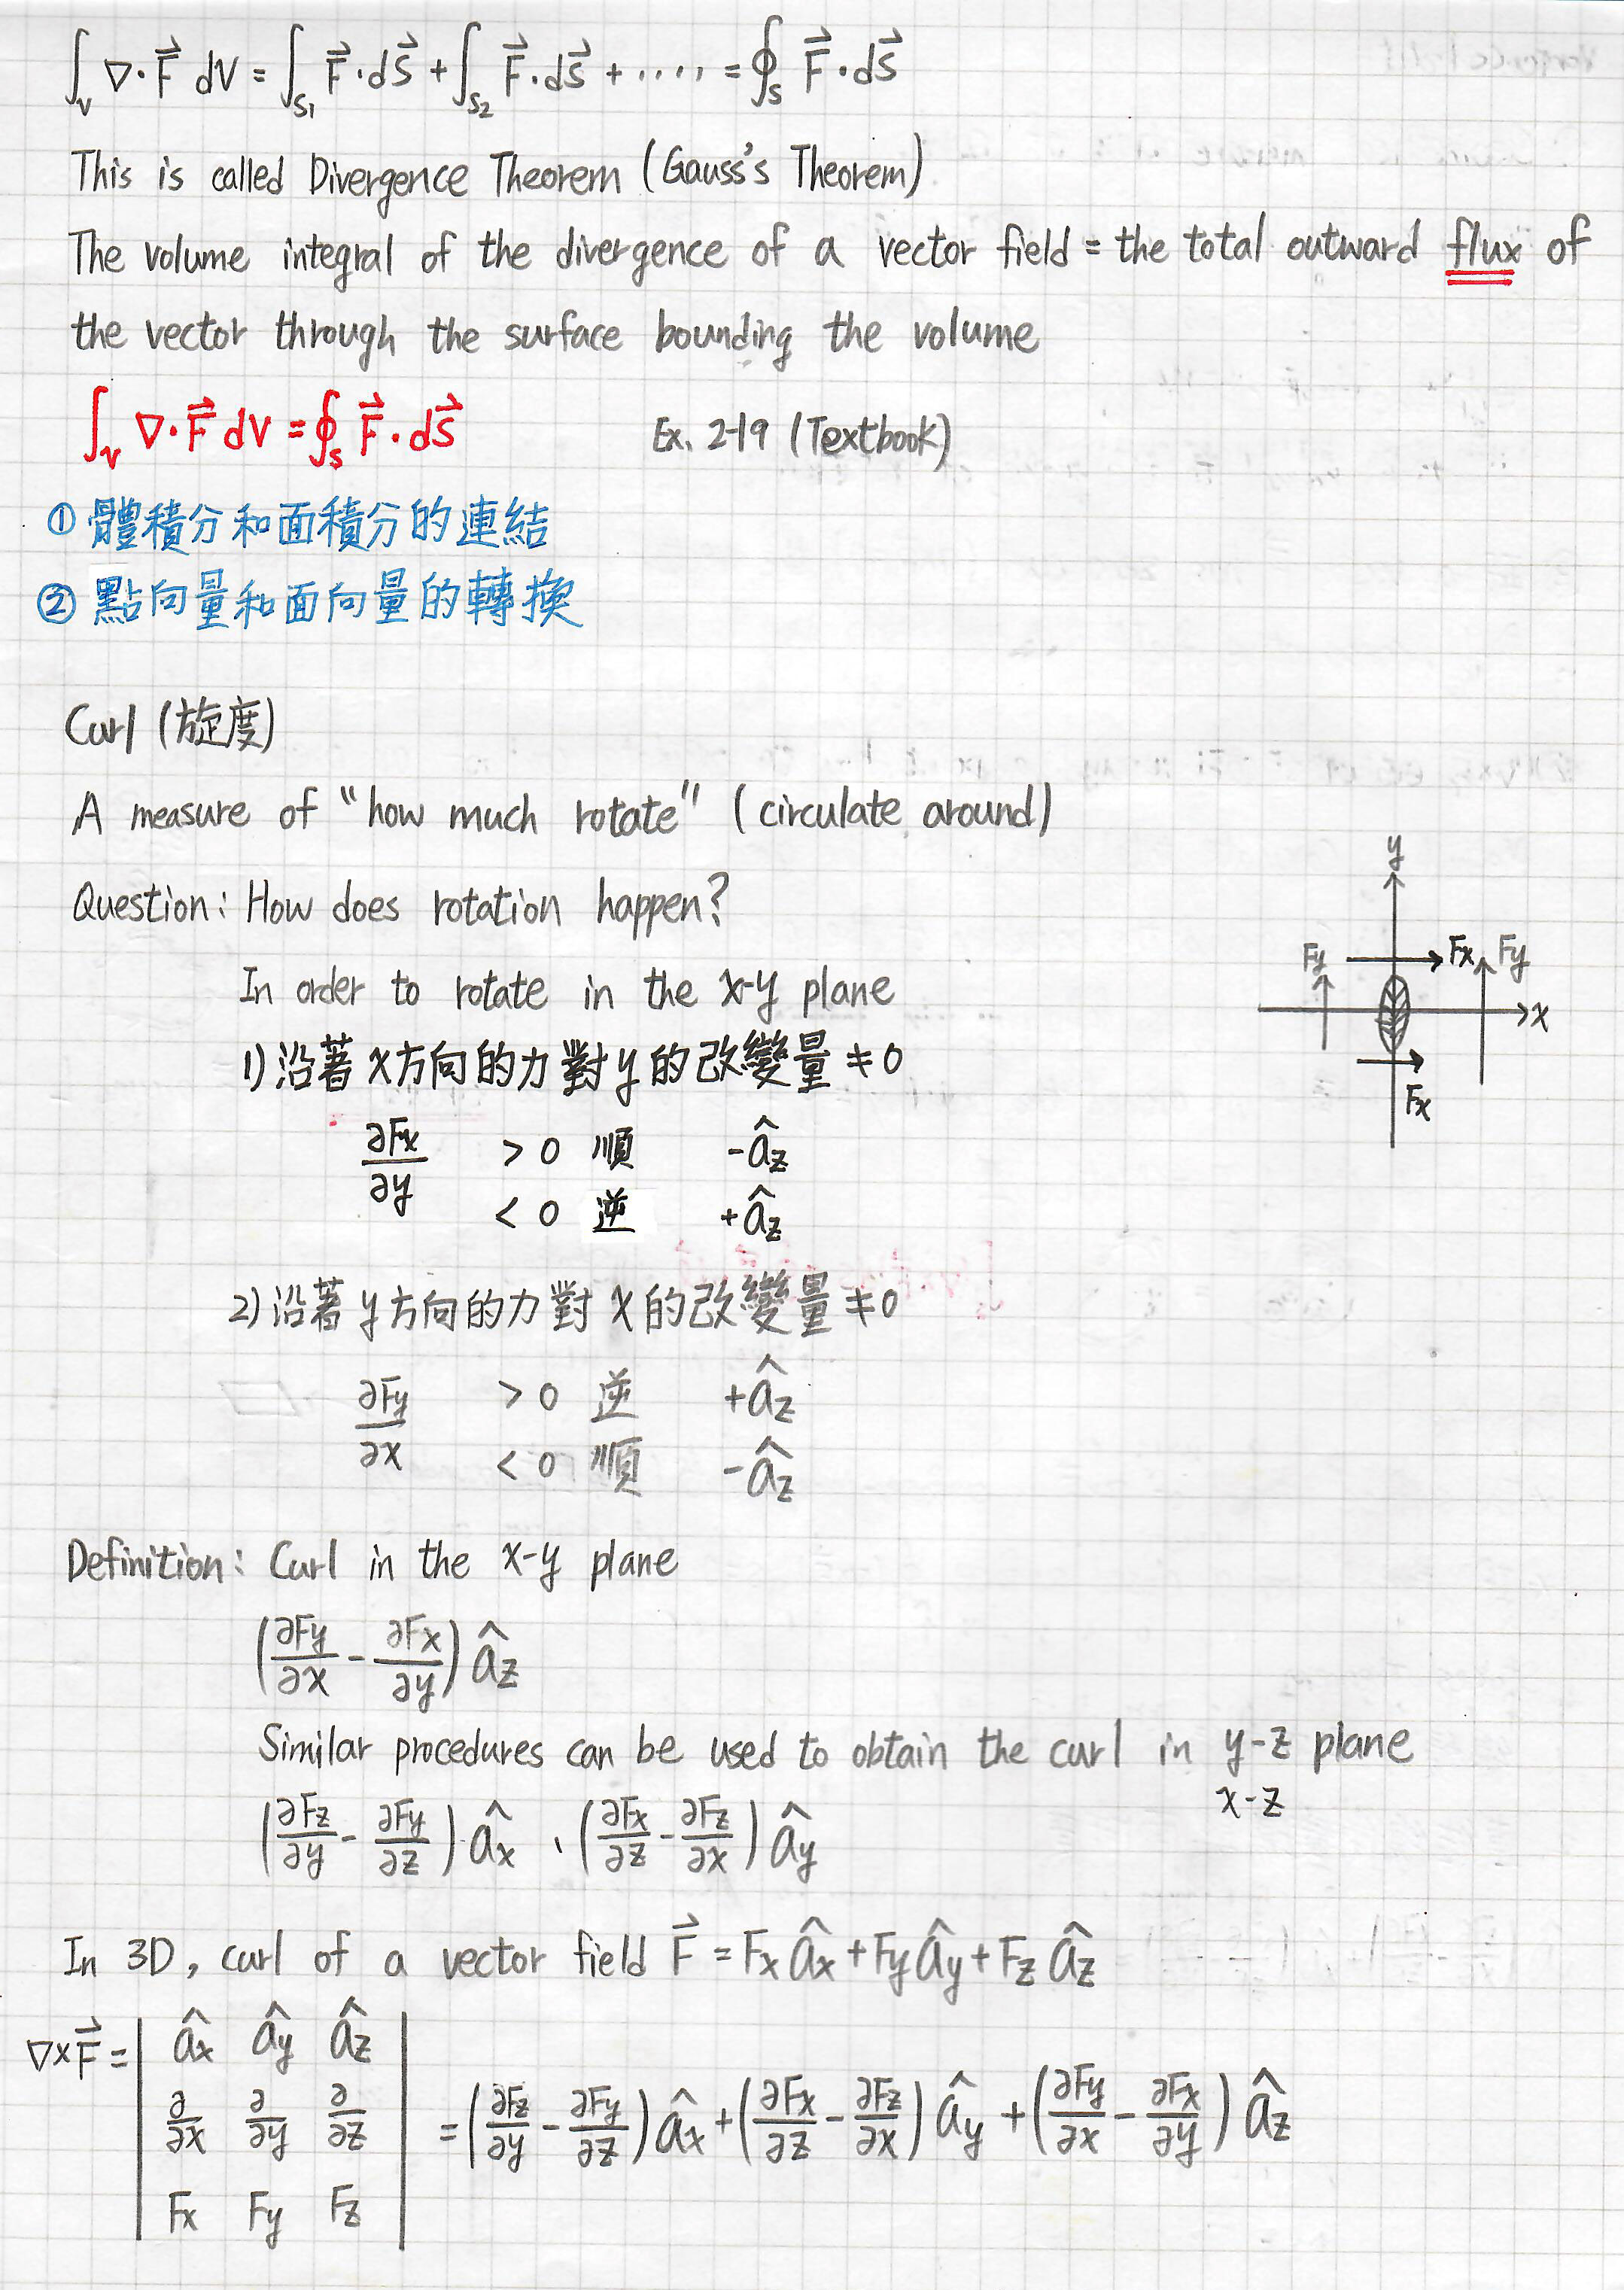 ∫_v ∇·F⃗ dV = ∫_S₁ F⃗·dS⃗ + ∫_S₂ F⃗·dS⃗ + ····· = ∮_S F⃗·dS⃗
This is called Divergence Theorem (Gauss's Theorem)
The volume integral of the divergence of a vector field = the total outward flux of
the vector through the surface bounding the volume
∫_v ∇·F⃗ dV = ∮_S F⃗·dS⃗ Ex. 2-19 (Textbook)
① 體積分和面積分的連結
② 點向量和面向量的轉換
Curl (旋度)
A measure of "how much rotate" (circulate around)
Question: How does rotation happen?
In order to rotate in the x-y plane
1) 沿著x方向的力對y的改變量≠0
∂Fx/∂y > 0 順 -âz
< 0 逆 +âz
2) 沿著y方向的力對x的改變量≠0
∂Fy/∂x > 0 逆 +âz
< 0 順 -âz
y
Fy Fx Fy
x
Fx
Definition: Curl in the x-y plane
(∂Fy/∂x - ∂Fx/∂y) âz
Similar procedures can be used to obtain the curl in y-z plane
x-z
(∂Fz/∂y - ∂Fy/∂z) âx 、(∂Fx/∂z - ∂Fz/∂x) ây
In 3D, curl of a vector field F⃗ = Fx âx + Fy ây + Fz âz
∇×F⃗ = | âx ây âz |
| ∂/∂x ∂/∂y ∂/∂z | = (∂Fz/∂y - ∂Fy/∂z) âx + (∂Fx/∂z - ∂Fz/∂x) ây + (∂Fy/∂x - ∂Fx/∂y) âz
| Fx Fy Fz |